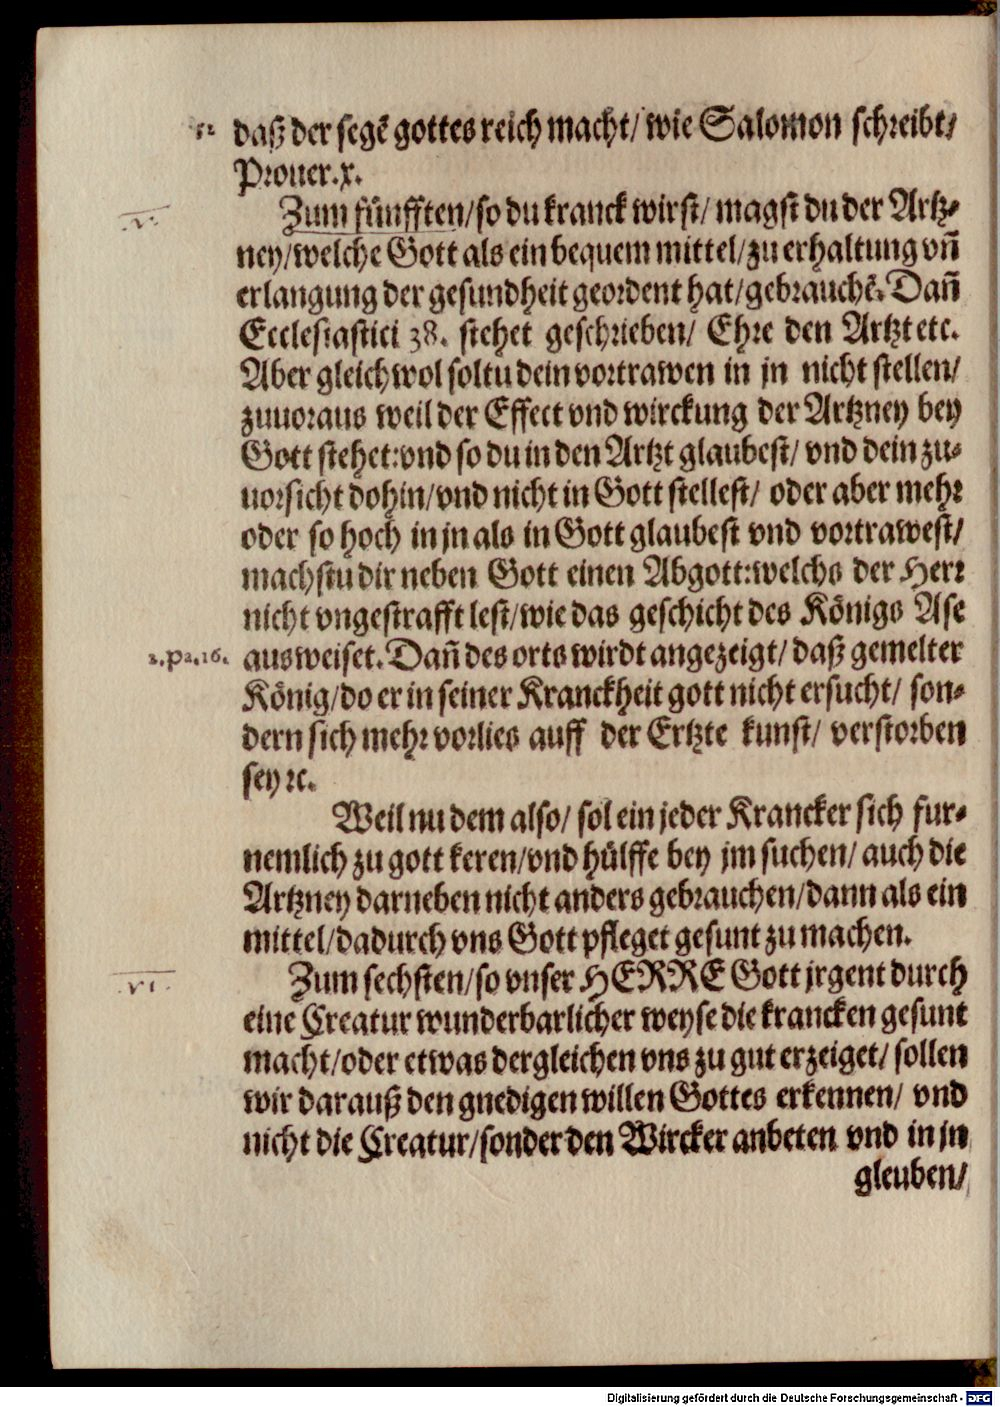 daß der segē gottes reich macht/ wie Salomon schreibt/
Prouer.x.
v.
Zum fünfften/so du kranck wirst/ magst du der Artz-
ney/welche Gott als ein bequem mittel/zu erhaltung vñ
erlangung der gesundheit geordent hat/gebrauchē. Dañ
Ecclesiastici 38. stehet geschrieben/ Ehre den Artzt etc.
Aber gleichwol soltu dein vortrawen in jn nicht stellen/
zuuoraus weil der Effect vnd wirckung der Artzney bey
Gott stehet:vnd so du in den Artzt glaubest/ vnd dein zu-
uorsicht dohin/vnd nicht in Gott stellest/ oder aber mehr
oder so hoch in jn als in Gott glaubest vnd vortrawest/
machstu dir neben Gott einen Abgott:welchs der Herr
nicht vngestrafft lest/wie das geschicht des Königs Ase
2.Pa.16. ausweiset. Dañ des orts wirdt angezeigt/ daß gemelter
König/do er in seiner Kranckheit gott nicht ersucht/ son-
dern sich mehr vorlies auff der Ertzte kunst/ verstorben
sey ꝛc.
Weil nu dem also/ sol ein jeder Krancker sich fur-
nemlich zu gott keren/vnd hülffe bey jm suchen/ auch die
Artzney darneben nicht anders gebrauchen/dann als ein
mittel/dadurch vns Gott pfleget gesunt zu machen.
vi.
Zum sechsten/so vnser HERRE Gott jrgent durch
eine Creatur wunderbarlicher weyse die krancken gesunt
macht/oder etwas dergleichen vns zu gut erzeiget/ sollen
wir darauß den gnedigen willen Gottes erkennen/ vnd
nicht die Creatur/sonder den Wircker anbeten vnd in jn
gleuben/
Digitalisierung gefördert durch die Deutsche Forschungsgemeinschaft - DFG